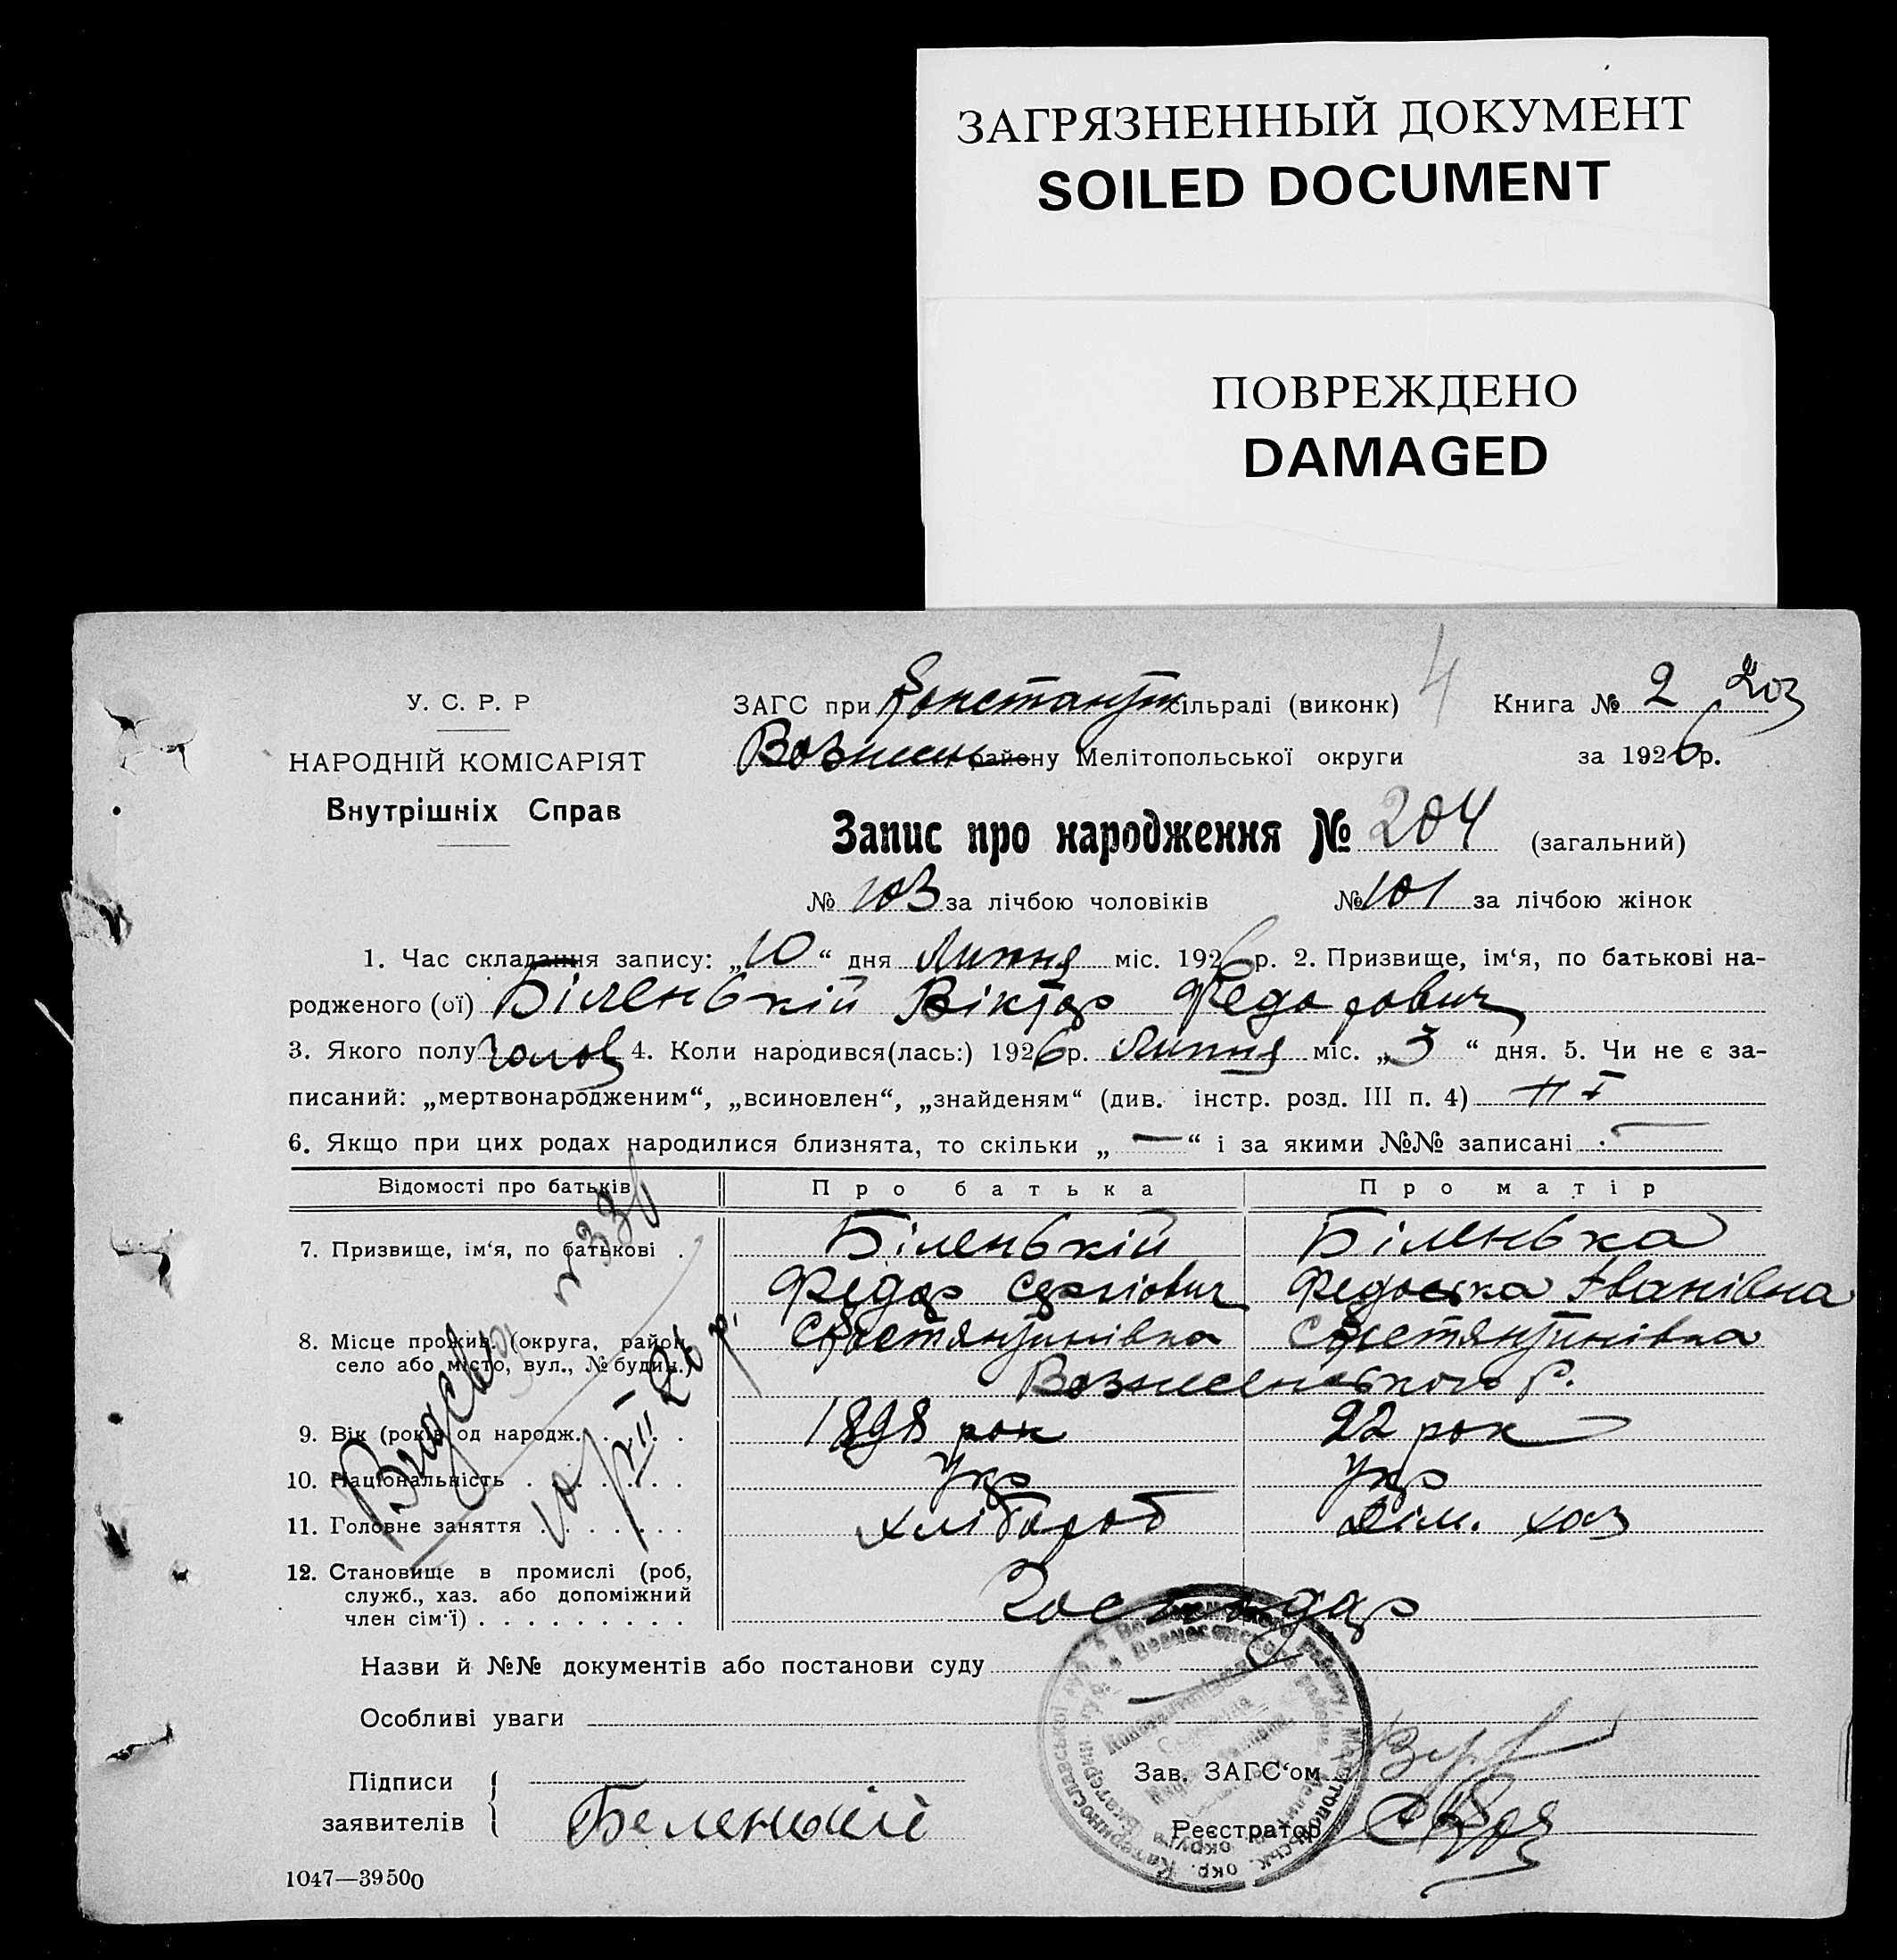 ЗАГРЯЗНЕННЫЙ ДОКУМЕНТ
SOILED DOCUMENT
ПОВРЕЖДЕНО
DAMAGED
У. С. Р. Р
НАРОДНІЙ КОМІСАРІЯТ
Внутрішніх Справ
ЗАГС при Константин сільраді (виконк) 4 Книга № 2 203
Вознесен району Мелітопольської округи за 1926 р.
Запис про народження № 204 (загальний)
№ 103 за лічбою чоловіків № 101 за лічбою жінок
1. Час складання запису: „10“ дня Липня міс. 1926 р. 2. Призвище, ім‘я, по батькові на-
родженого (ої) Біленькій Віктор Федорович
3. Якого полу чолов 4. Коли народився(лась:) 1926 р. Липня міс. „3“ дня. 5. Чи не є за-
писаний: „мертвонародженим“, „всиновлен“, „знайденям“ (див. інстр. розд. III п. 4) ні
6. Якщо при цих родах народилися близнята, то скільки „ — “ і за якими №№ записані —
Відомості про батьків Про батька Про матір
7. Призвище, ім‘я, по батькові . Біленькій Біленька
Федор Сергіович Федоська Іванівна
8. Місце прожив. (округа, район,
село або місто, вул., № будин.) Костянтинівка Костянтинівка
Вознесенського р.
9. Вік (років од народж. . . . . 1898 рок 22 рок
10. Національність . . . . . . . Укр Укр
11. Головне заняття . . . . . . . хлібороб Дім. хаз
12. Становище в промислі (роб,
служб., хаз. або допоміжний
член сім‘ї) . . . . . . . . . Господар
Назви й №№ документів або постанови суду
Особливі уваги
Підписи
заявителів
Беленький
Зав. ЗАГС‘ом
Реєстратор
1047—39500